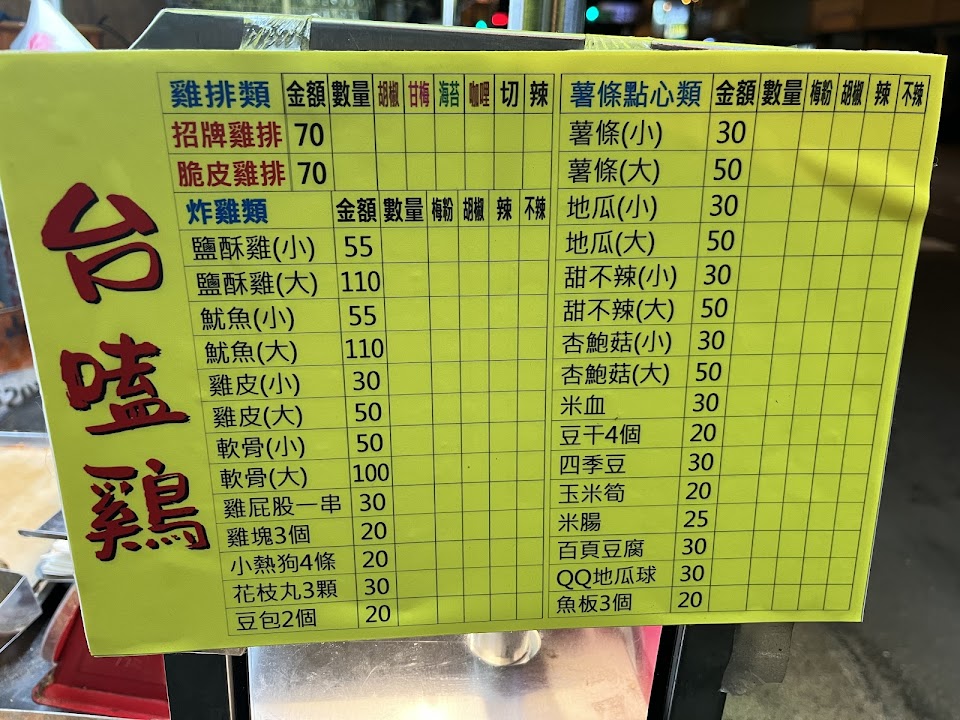 台嗑鷄
雞排類 金額 數量 胡椒 甘梅 海苔 咖哩 切 辣
招牌雞排 70
脆皮雞排 70
炸雞類 金額 數量 梅粉 胡椒 辣 不辣
鹽酥雞(小) 55
鹽酥雞(大) 110
魷魚(小) 55
魷魚(大) 110
雞皮(小) 30
雞皮(大) 50
軟骨(小) 50
軟骨(大) 100
雞屁股一串 30
雞塊3個 20
小熱狗4條 20
花枝丸3顆 30
豆包2個 20
薯條點心類 金額 數量 梅粉 胡椒 辣 不辣
薯條(小) 30
薯條(大) 50
地瓜(小) 30
地瓜(大) 50
甜不辣(小) 30
甜不辣(大) 50
杏鮑菇(小) 30
杏鮑菇(大) 50
米血 30
豆干4個 20
四季豆 30
玉米筍 20
米腸 25
百頁豆腐 30
QQ地瓜球 30
魚板3個 20